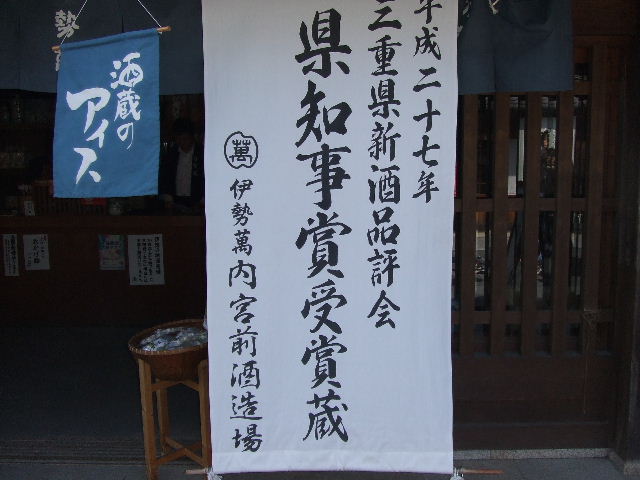 平成二十七年
三重県新酒品評会
県知事賞受賞蔵
萬
伊勢萬内宮前酒造場
酒蔵の
アイス
勢